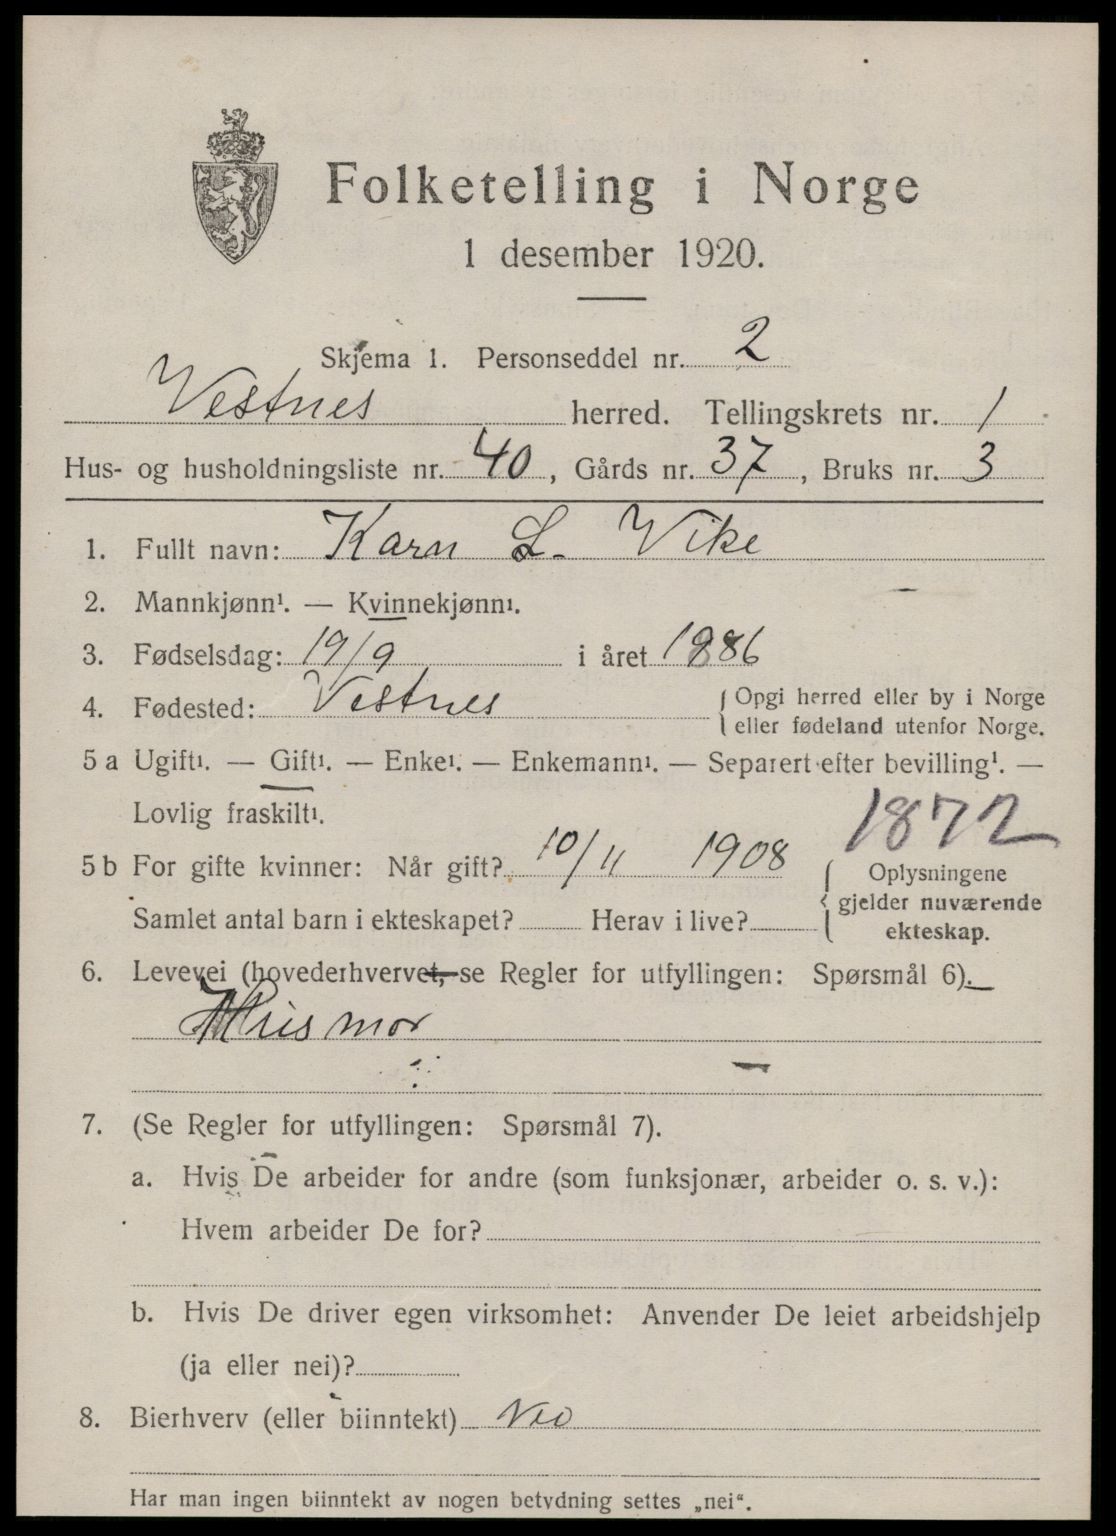 Folketelling i Norge
1 desember 1920.
Skjema 1. Personseddel nr. 2
Vestnes herred. Tellingskrets nr. 1
Hus- og husholdningsliste nr. 40, Gårds nr. 37, Bruks nr. 3
1. Fullt navn: Karn L. Vike
2. Mannkjønn¹. — Kvinnekjønn¹.
3. Fødselsdag: 19/9 i året 1886
4. Fødested: Vestnes { Opgi herred eller by i Norge
eller fødeland utenfor Norge.
5 a Ugift¹. — Gift¹. — Enke¹. — Enkemann¹. — Separert efter bevilling¹. —
Lovlig fraskilt¹.
1872
5 b For gifte kvinner: Når gift? 10/11 1908
Samlet antal barn i ekteskapet? Herav i live?
{ Oplysningene
gjelder nuværende
ekteskap.
6. Levevei (hovederhvervet, se Regler for utfyllingen: Spørsmål 6).
Husmor
7. (Se Regler for utfyllingen: Spørsmål 7).
a. Hvis De arbeider for andre (som funksjonær, arbeider o. s. v.):
Hvem arbeider De for?
b. Hvis De driver egen virksomhet: Anvender De leiet arbeidshjelp
(ja eller nei)?
8. Bierhverv (eller biinntekt)
Har man ingen biinntekt av nogen betydning settes „nei“.